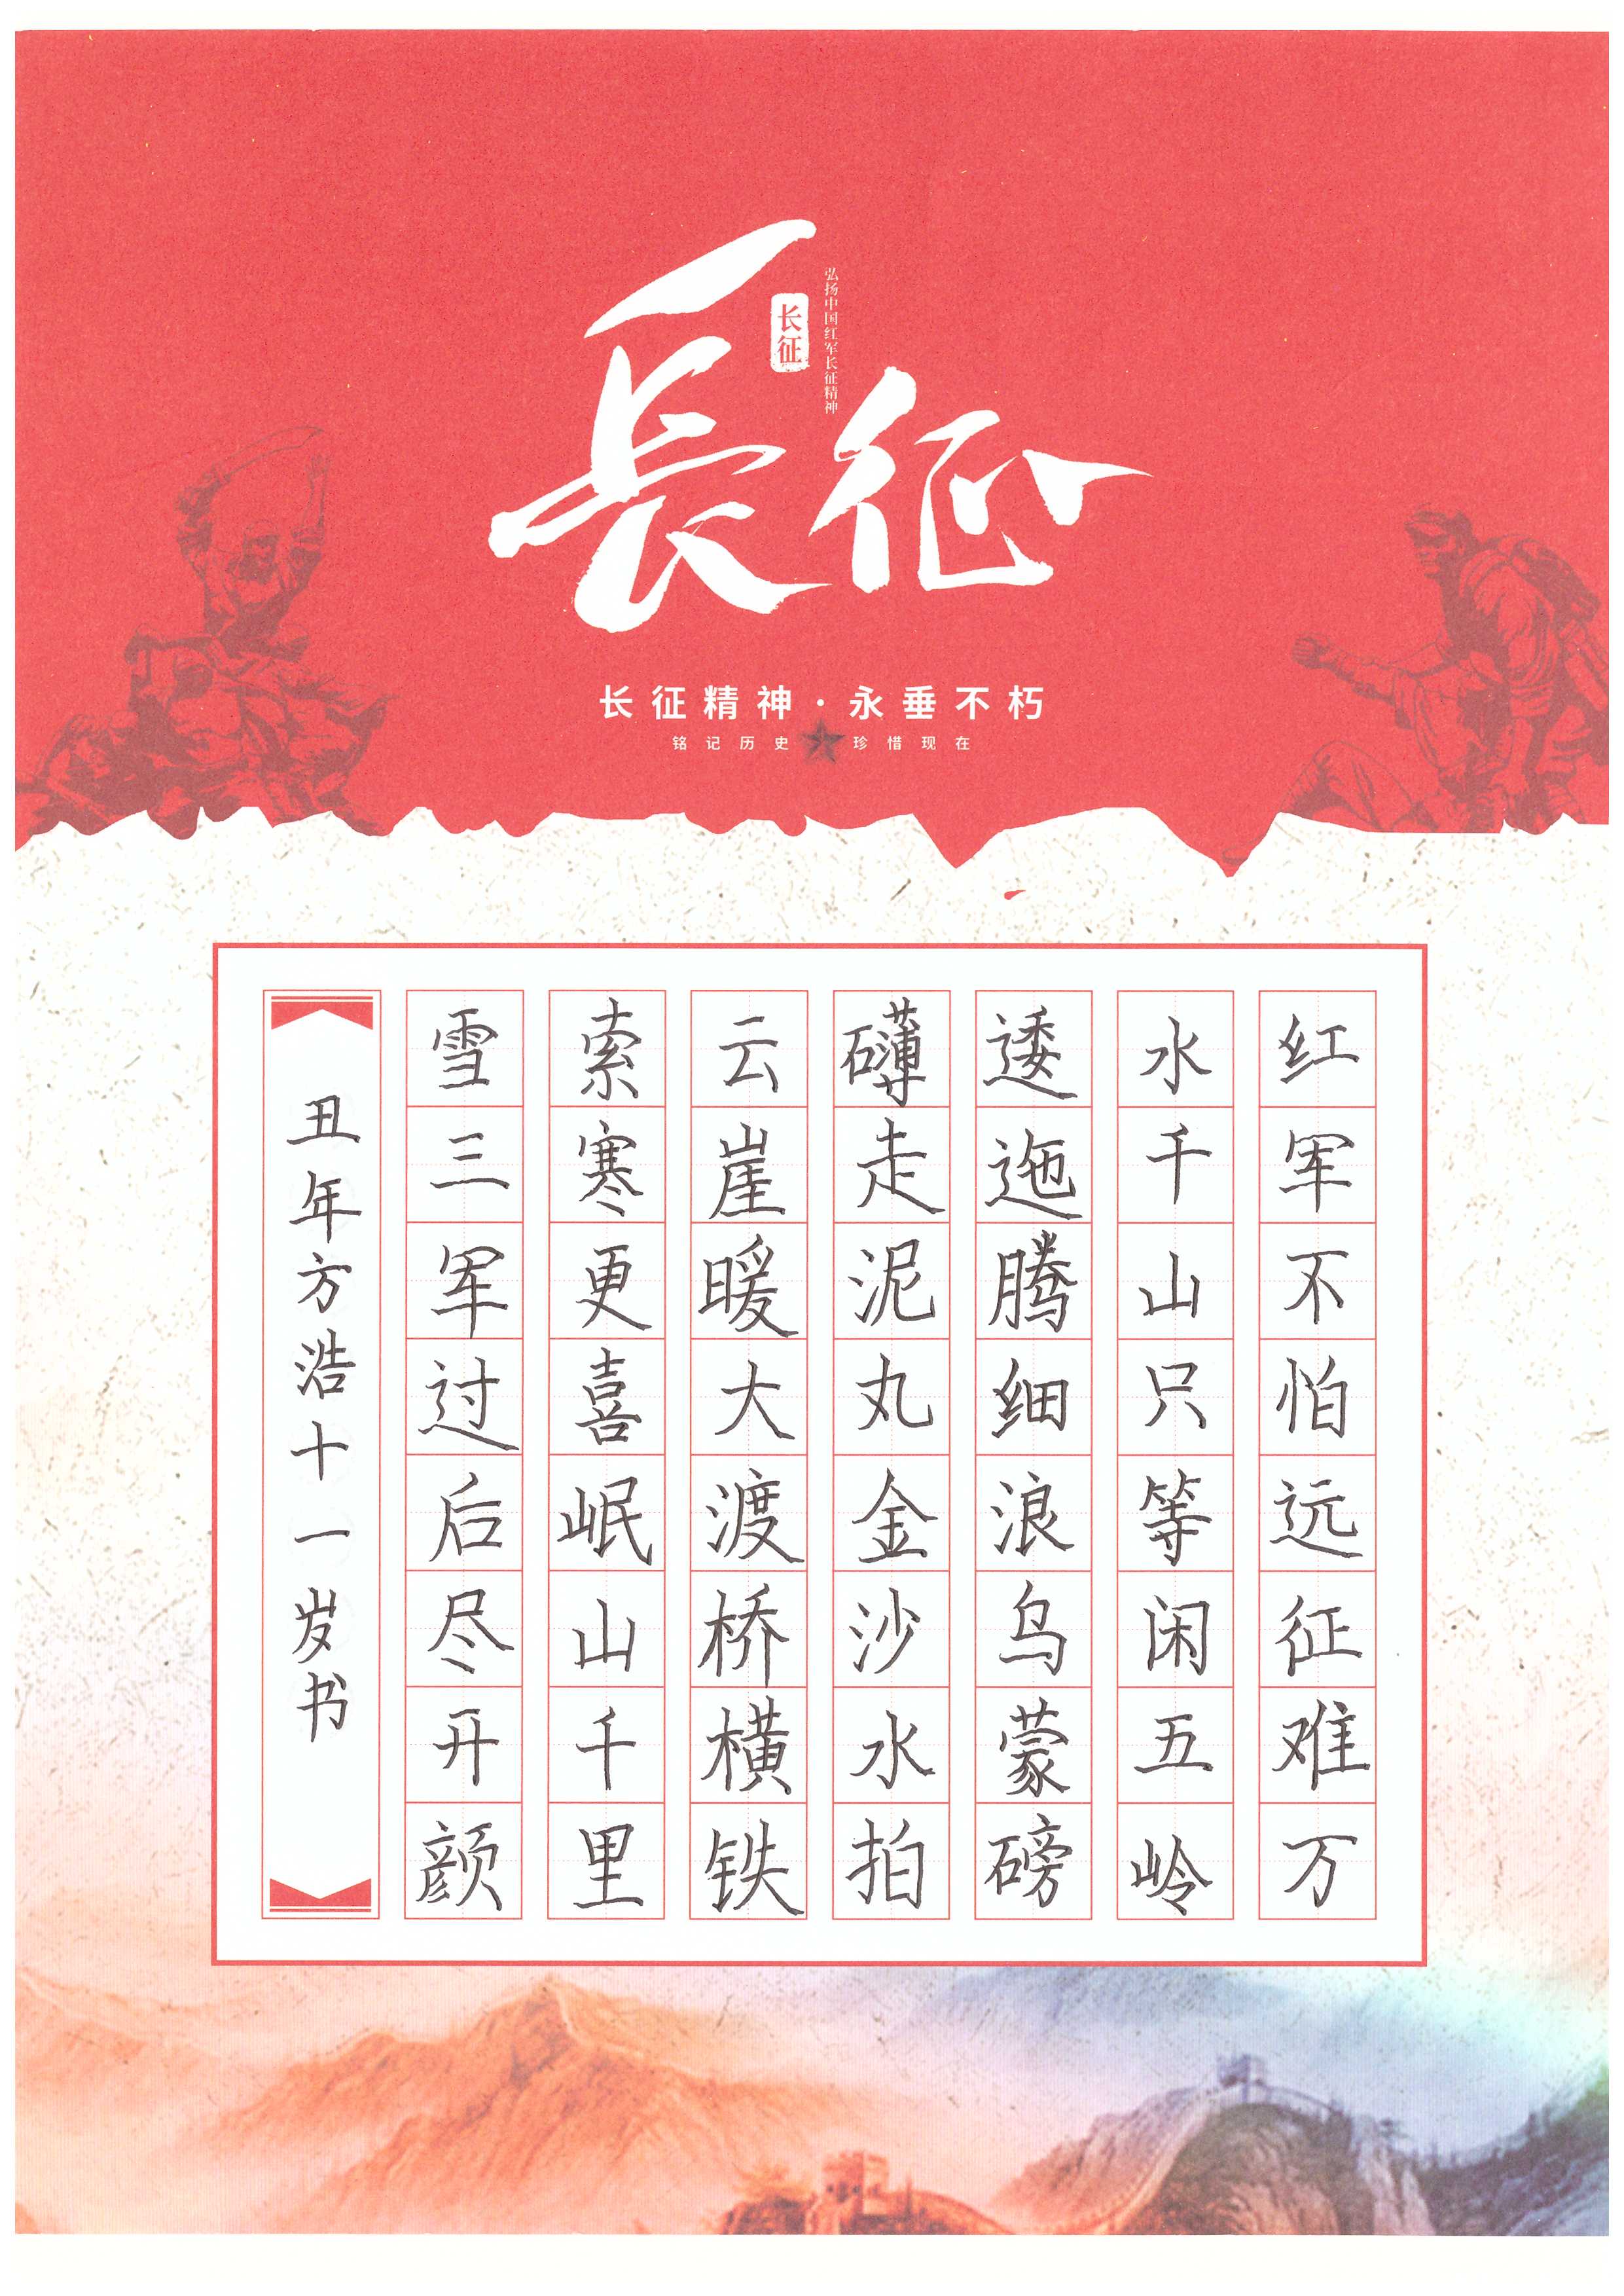 長征
长征
弘扬中国红军长征精神
长征精神·永垂不朽
铭记历史 珍惜现在
红军不怕远征难万
水千山只等闲五岭
逶迤腾细浪乌蒙磅
礴走泥丸金沙水拍
云崖暖大渡桥横铁
索寒更喜岷山千里
雪三军过后尽开颜
丑年方浩十一岁书